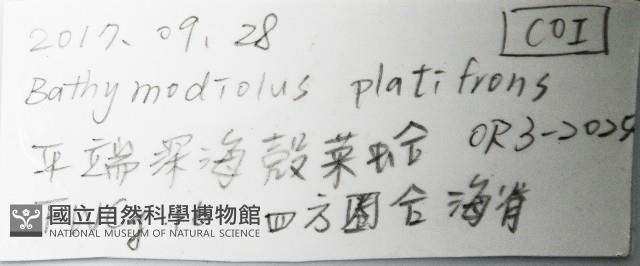 2017. 09. 28 COI
Bathymodiolus platifrons
平端深海殼菜蛤 OR3-2025
四方圈合海脊
國立自然科學博物館
NATIONAL MUSEUM OF NATURAL SCIENCE